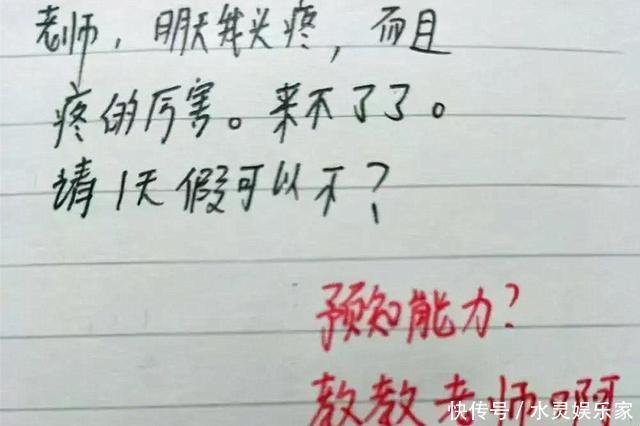 老师，明天我头疼，而且
疼的厉害。来不了了。
请1天假可以不？
预知能力？
教教老师啊
快传号／水灵娱乐家